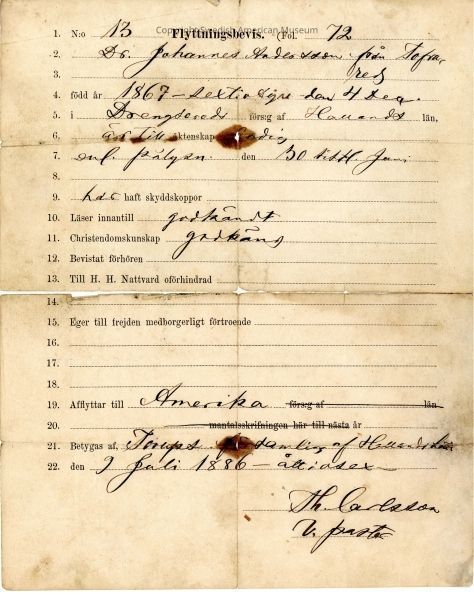 Copyright Swedish American Museum
1. N:o 13 Flyttningsbevis. (Fol. 72
2. Dr. Johannes Andersson från Tofra-
3. red
4. född år 1867 – sextiosju den 4 Dec.
5. i Drengsered förs:g af Hallands län,
6. är till äktenskap ledig
7. enl. pålysn. den 30 sistl. Juni
8.
9. har haft skyddskoppor
10. Läser innantill godkändt
11. Christendomskunskap godkänd
12. Bevistat förhören
13. Till H. H. Nattvard oförhindrad
14.
15. Eger till frejden medborgerligt förtroende
16.
17.
18.
19. Afflyttar till Amerika förs:g af län
20. mantalsskrifningen här till nästa år
21. Betygas af Torups församling af Hallands län
22. den 9 Juli 1886 – åttiosex
Th. Carlsson
V. pastor